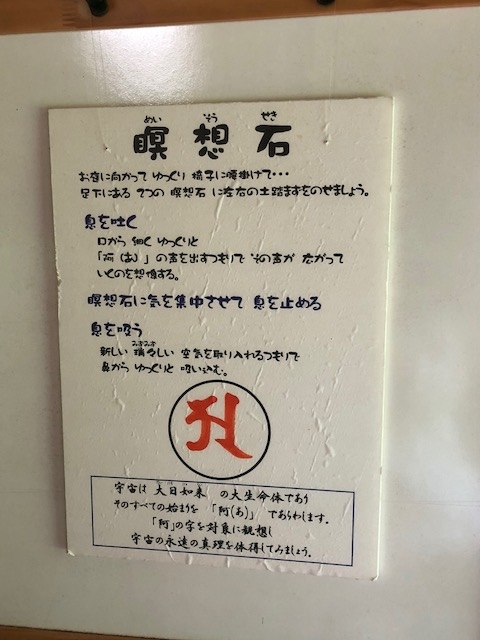 めい そう せき
瞑想石
お庭に向かって ゆっくり 椅子に腰掛けて・・・
足下にある 2つの 瞑想石 に左右の土踏まずをのせましょう。
息を吐く
口から 細く ゆっくりと
「阿(あ)」の声を出すつもりで その声が 広がって
いくのを想像する。
瞑想石に気を集中させて 息を止める
息を吸う
みずみず
新しい 瑞々しい 空気を取り入れるつもりで
鼻から ゆっくりと 吸い込む。
宇宙は 大日如来 の大生命体であり
そのすべての始まりを 「阿(あ)」 であらわします。
「阿」の字を対象に観想し
宇宙の永遠の真理を体得してみましょう。